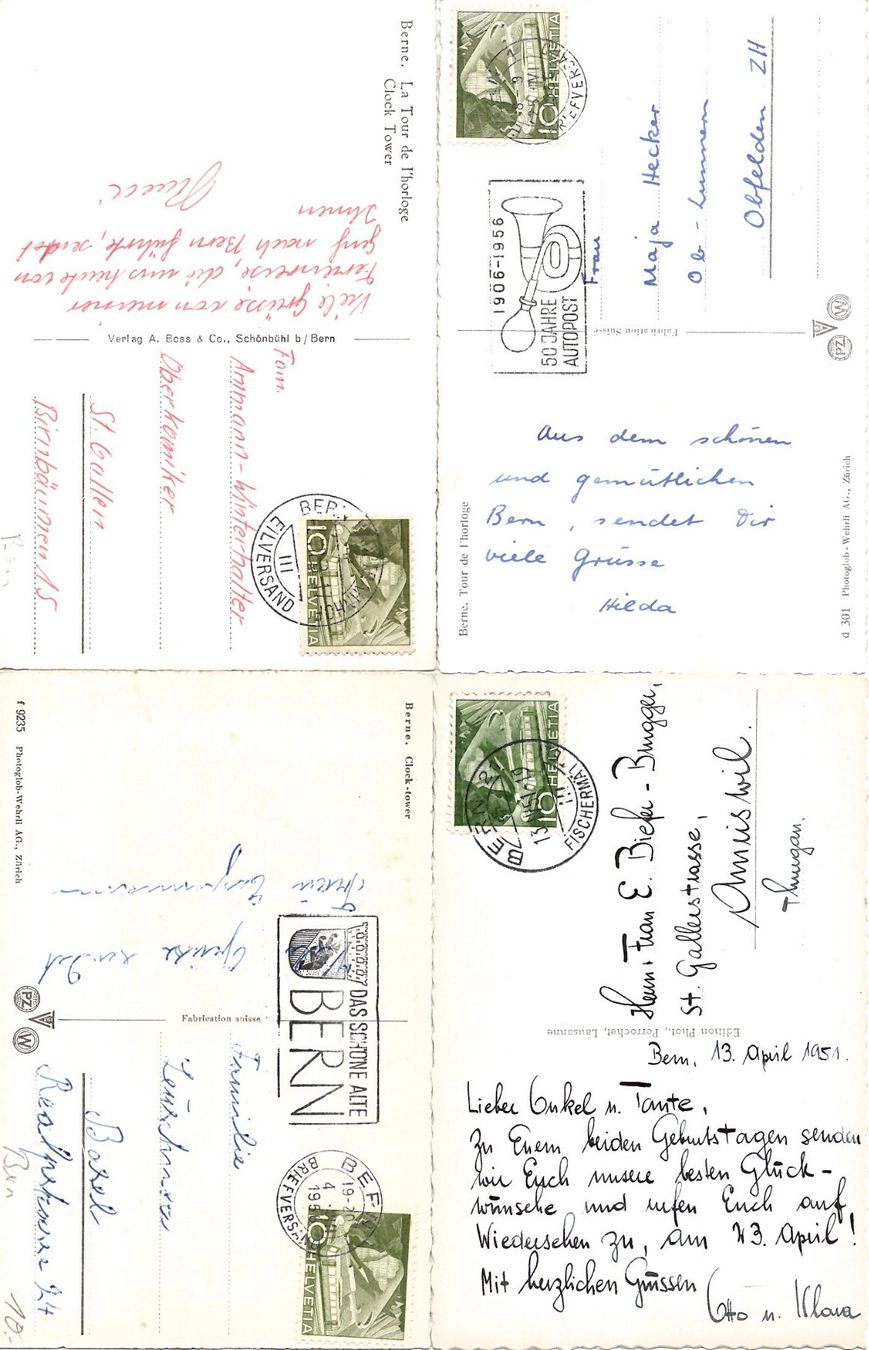 Berne. La Tour de l'horloge
Clock Tower
Viele Grüsse von meiner
Ferienreise, die uns heute von
Genf nach Bern führte, sendet
Ihnen
Verlag A. Boss & Co., Schönbühl b/Bern
Fam.
Ammann-Winterhalter
Oberkomiker
St. Gallen
Birnbäumen 15
BERN
EILVERSAND
III
10 HELVETIA
10 HELVETIA
BRIEFVERSAND
1906-1956
50 JAHRE
AUTOPOST
Frau
Maja Hecker
Ob-Lunnern
Obfelden ZH
Fabrication Suisse
PZ
W
Aus dem schönen
und gemütlichen
Bern, sendet Dir
viele Grüsse
Hilda
Berne. Tour de l'horloge
d 301 Photoglob-Wehrli AG., Zürich
f 9235 Photoglob-Wehrli AG., Zürich
Berne. Clock-tower
Grüsse sendet
Fabrication suisse
PZ
W
DAS SCHÖNE ALTE
BERN
Familie
Basel
24
Bern
10.-
BERN
BRIEFVERSAND
10 HELVETIA
10 HELVETIA
BERN 21
FISCHERMÄT
Herr u. Frau E. Biefer-Brugger,
St. Gallerstrasse,
Amriswil.
Thurgau.
Edition Phot., Perrochet, Lausanne
Bern, 13. April 1951.
Lieber Onkel u. Tante,
Zu Euern beiden Geburtstagen senden
wir Euch unsere besten Glück-
wünsche und rufen Euch auf
Wiedersehen zu, am 23. April!
Mit herzlichen Grüssen
Otto u. Klara